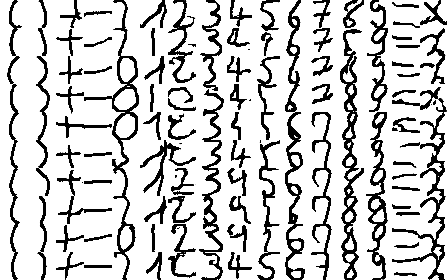 ( ) + - 1 2 3 4 5 6 7 8 9 = x
( ) + - 1 2 3 4 9 6 7 8 9 =
( ) + - 0 1 2 3 4 5 6 7 8 9 =
( ) + - 0 1 2 3 4 5 6 7 8 9 =
( ) + - 0 1 2 3 4 5 6 7 8 9 =
( ) + - 1 2 3 4 5 6 7 8 9 =
( ) + - 1 2 3 4 5 6 7 8 9 =
( ) + - 1 2 3 4 5 6 7 8 9 =
( ) + - 0 1 2 3 4 5 6 7 8 9 =
( ) + - 1 2 3 4 5 6 7 8 9 =